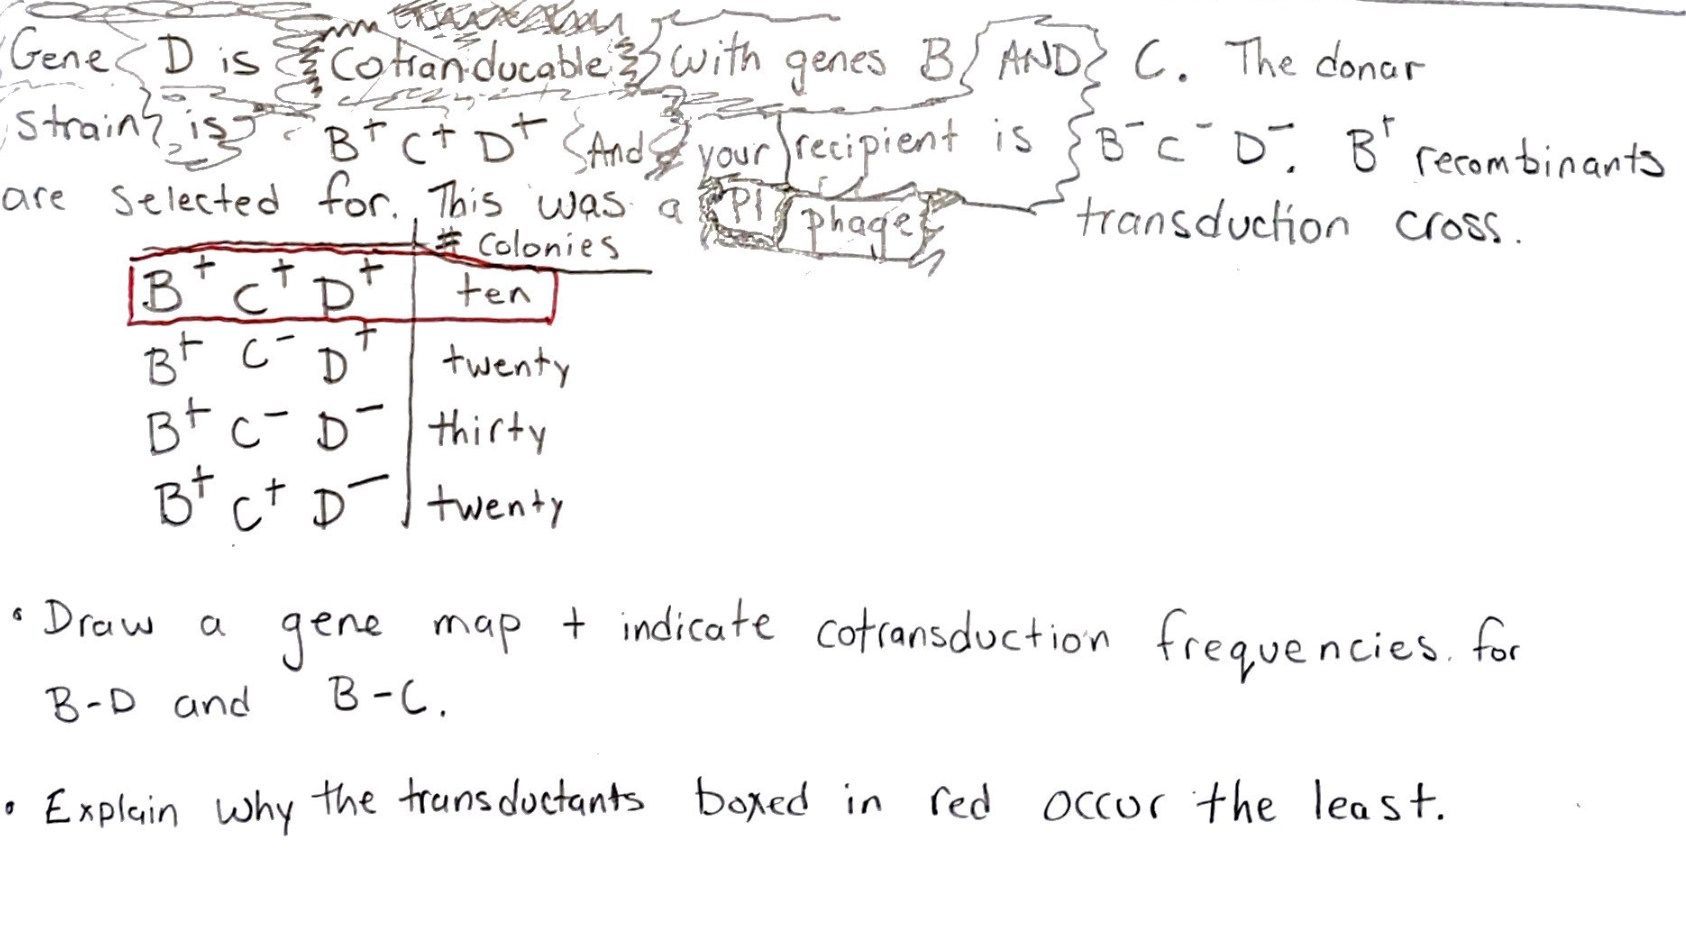 Gene D is Cotranducable with genes B AND C. The donar
strain is B+ C+ D+ And your recipient is B- C- D-. B+ recombinants
are selected for. This was a P1 phage transduction cross.
# colonies
B+ C+ D+ ten
B+ C- D+ twenty
B+ C- D- thirty
B+ C+ D- twenty
• Draw a gene map + indicate cotransduction frequencies. for
B-D and B-C.
• Explain why the transductants boxed in red occur the least.